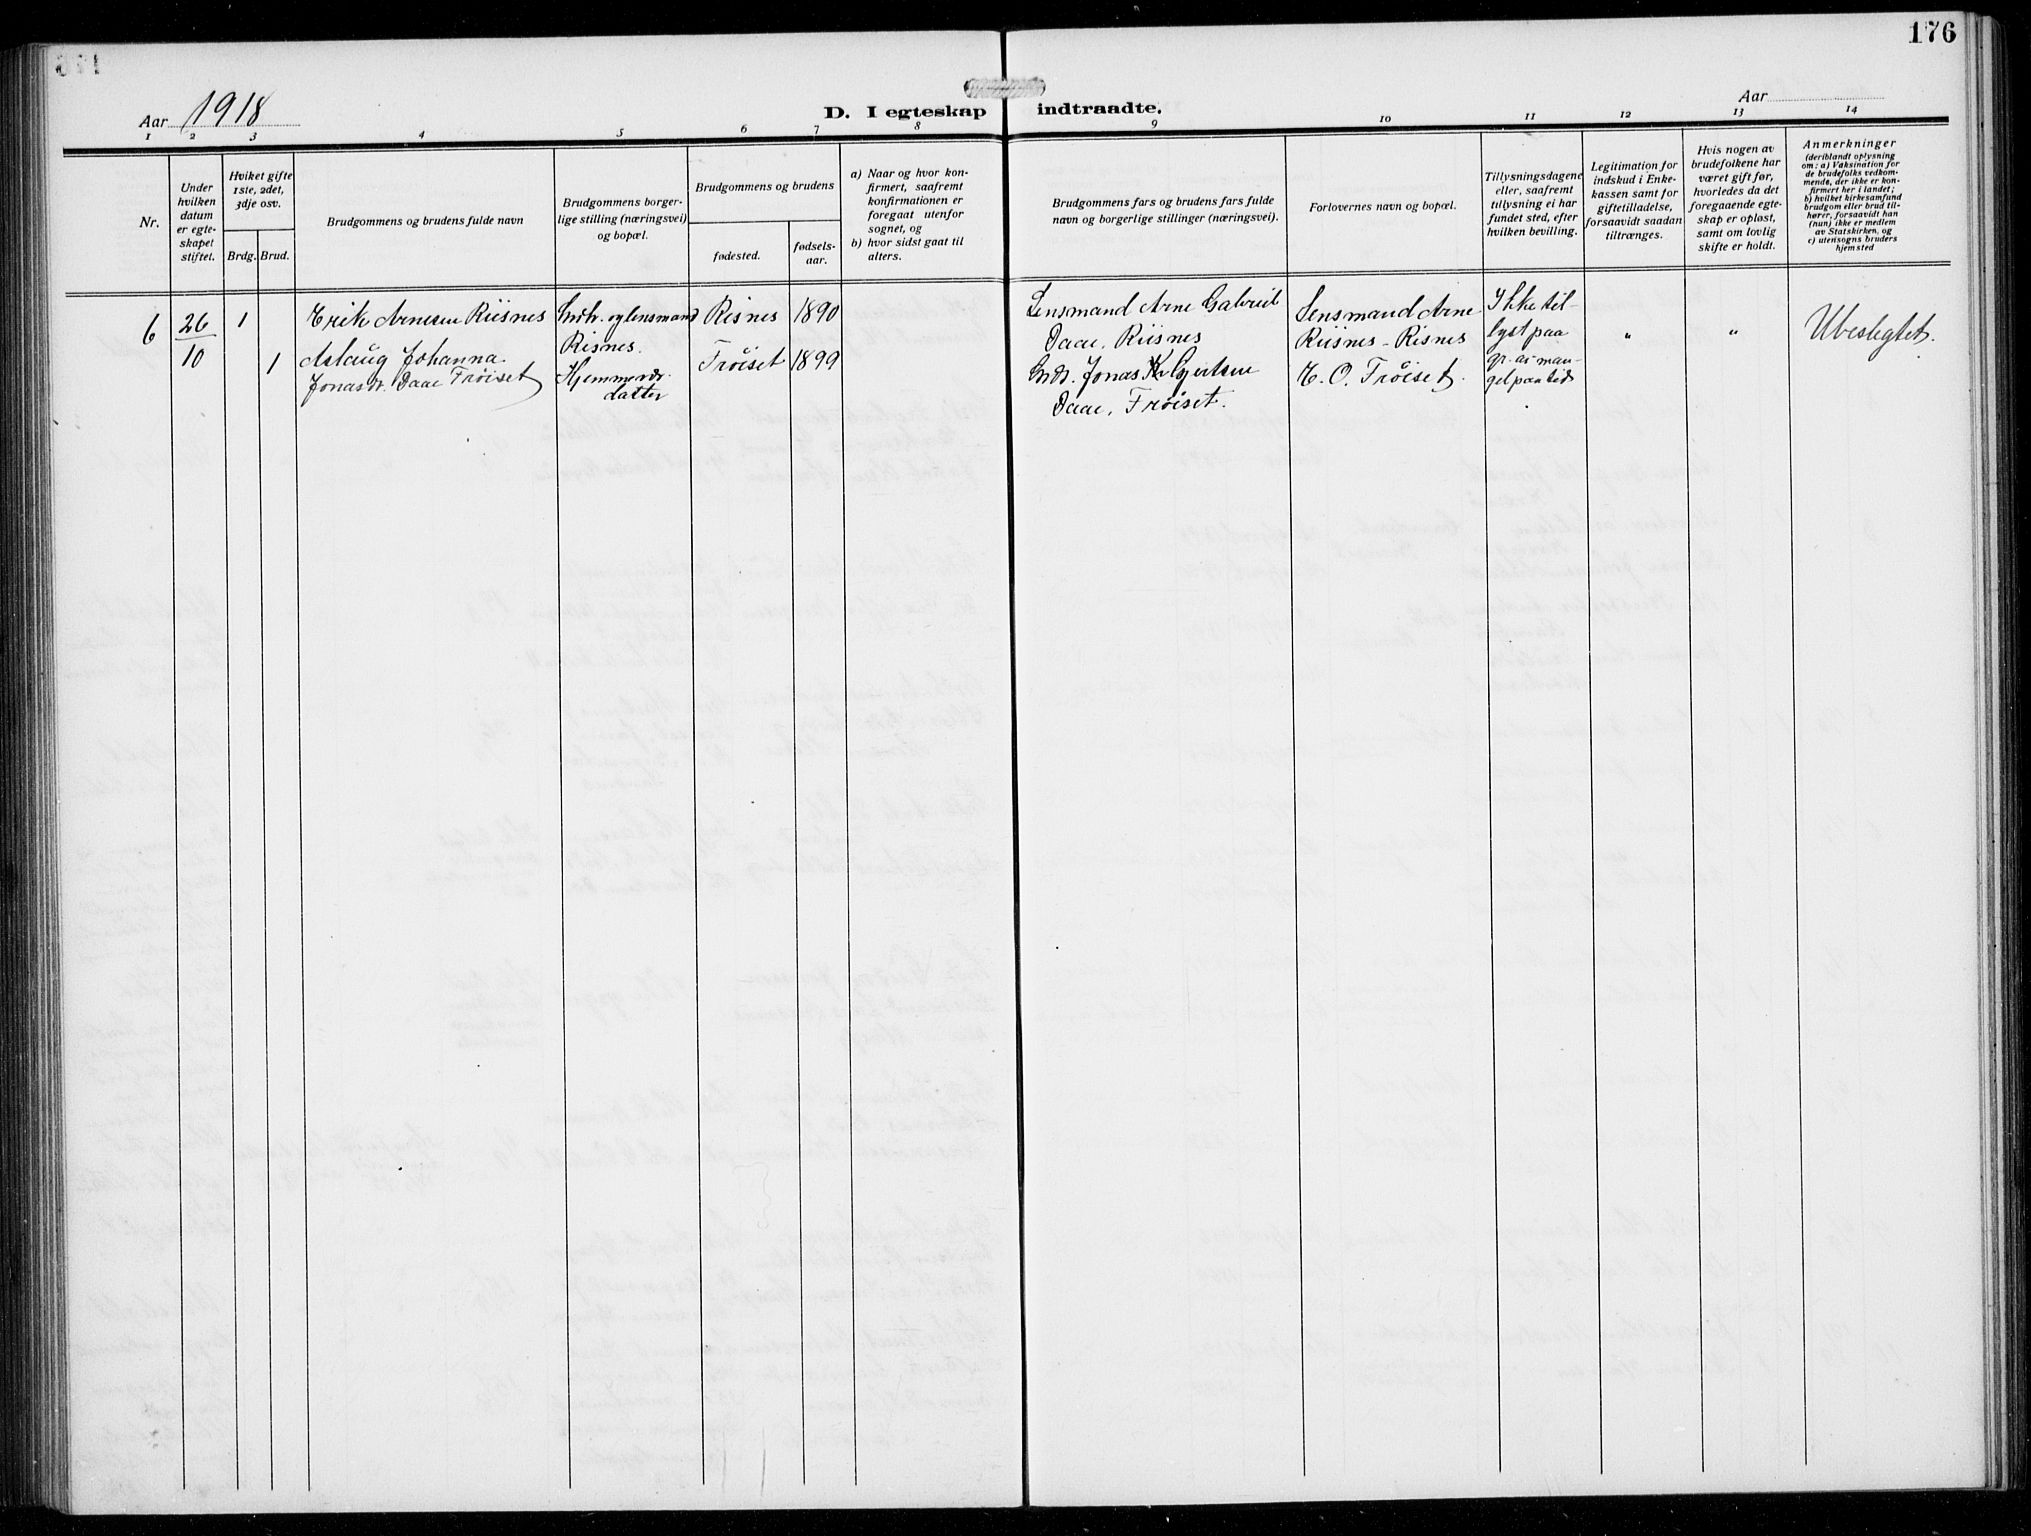 176
Aar 1918
D. I egteskap indtraadte.
Aar
1 2 3 4 5 6 7 8 9 10 11 12 13 14
Nr.
Under
hvilken
datum
er egte-
skapet
stiftet.
Hviket gifte
1ste, 2det,
3dje osv.
Brdg.
Brud.
Brudgommens og brudens fulde navn
Brudgommens borger-
lige stilling (næringsvei)
og bopæl.
Brudgommens og brudens
fødested.
fødsels-
aar.
a) Naar og hvor kon-
firmert, saafremt
konfirmationen er
foregaat utenfor
sognet, og
b) hvor sidst gaat til
alters.
Brudgommens fars og brudens fars fulde
navn og borgerlige stillinger (næringsvei).
Forlovernes navn og bopæl.
Tillysningsdagene
eller, saafremt
tillysning ei har
fundet sted, efter
hvilken bevilling.
Legitimation for
indskud i Enke-
kassen samt for
giftetilladelse,
forsaavidt saadan
tiltrænges.
Hvis nogen av
brudefolkene har
været gift før,
hvorledes da det
foregaaende egte-
skap er opløst,
samt om lovlig
skifte er holdt.
Anmerkninger
(deriblandt oplysning
om: a) Vaksination for
de brudefolks vedkom-
mende, der ikke er kon-
firmert her i landet;
b) hvilket kirkesamfund
brudgom eller brud til-
hører, forsaavidt han
(hun) ikke er medlem
av Statskirken, og
c) utensogns bruders
hjemsted
6
26
10
1
1
Erik Arnesen Riisnes
Aslaug Johanna
Jonasdr. Daae Frøiset
Grdbr. og lensmand
Risnes.
Hjemmevær.
datter
Risnes
Frøiset
1890
1899
Lensmand Arne Gabriel
Daae, Riisnes
Grdbr. Jonas K Gjertsen
Daae, Frøiset.
Lensmand Arne
Riisnes - Risnes
E. O. Frøiset.
Ikke til-
lyst paa
gr. av man-
gel paa tid
"
"
Ubeslegtet.